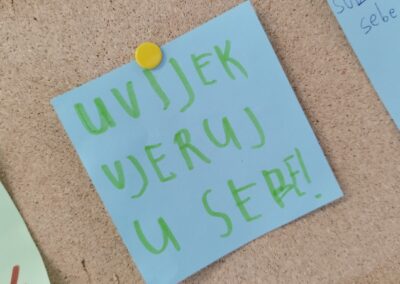 UVIJEK
VJERUJ
U SEBE!
sebe